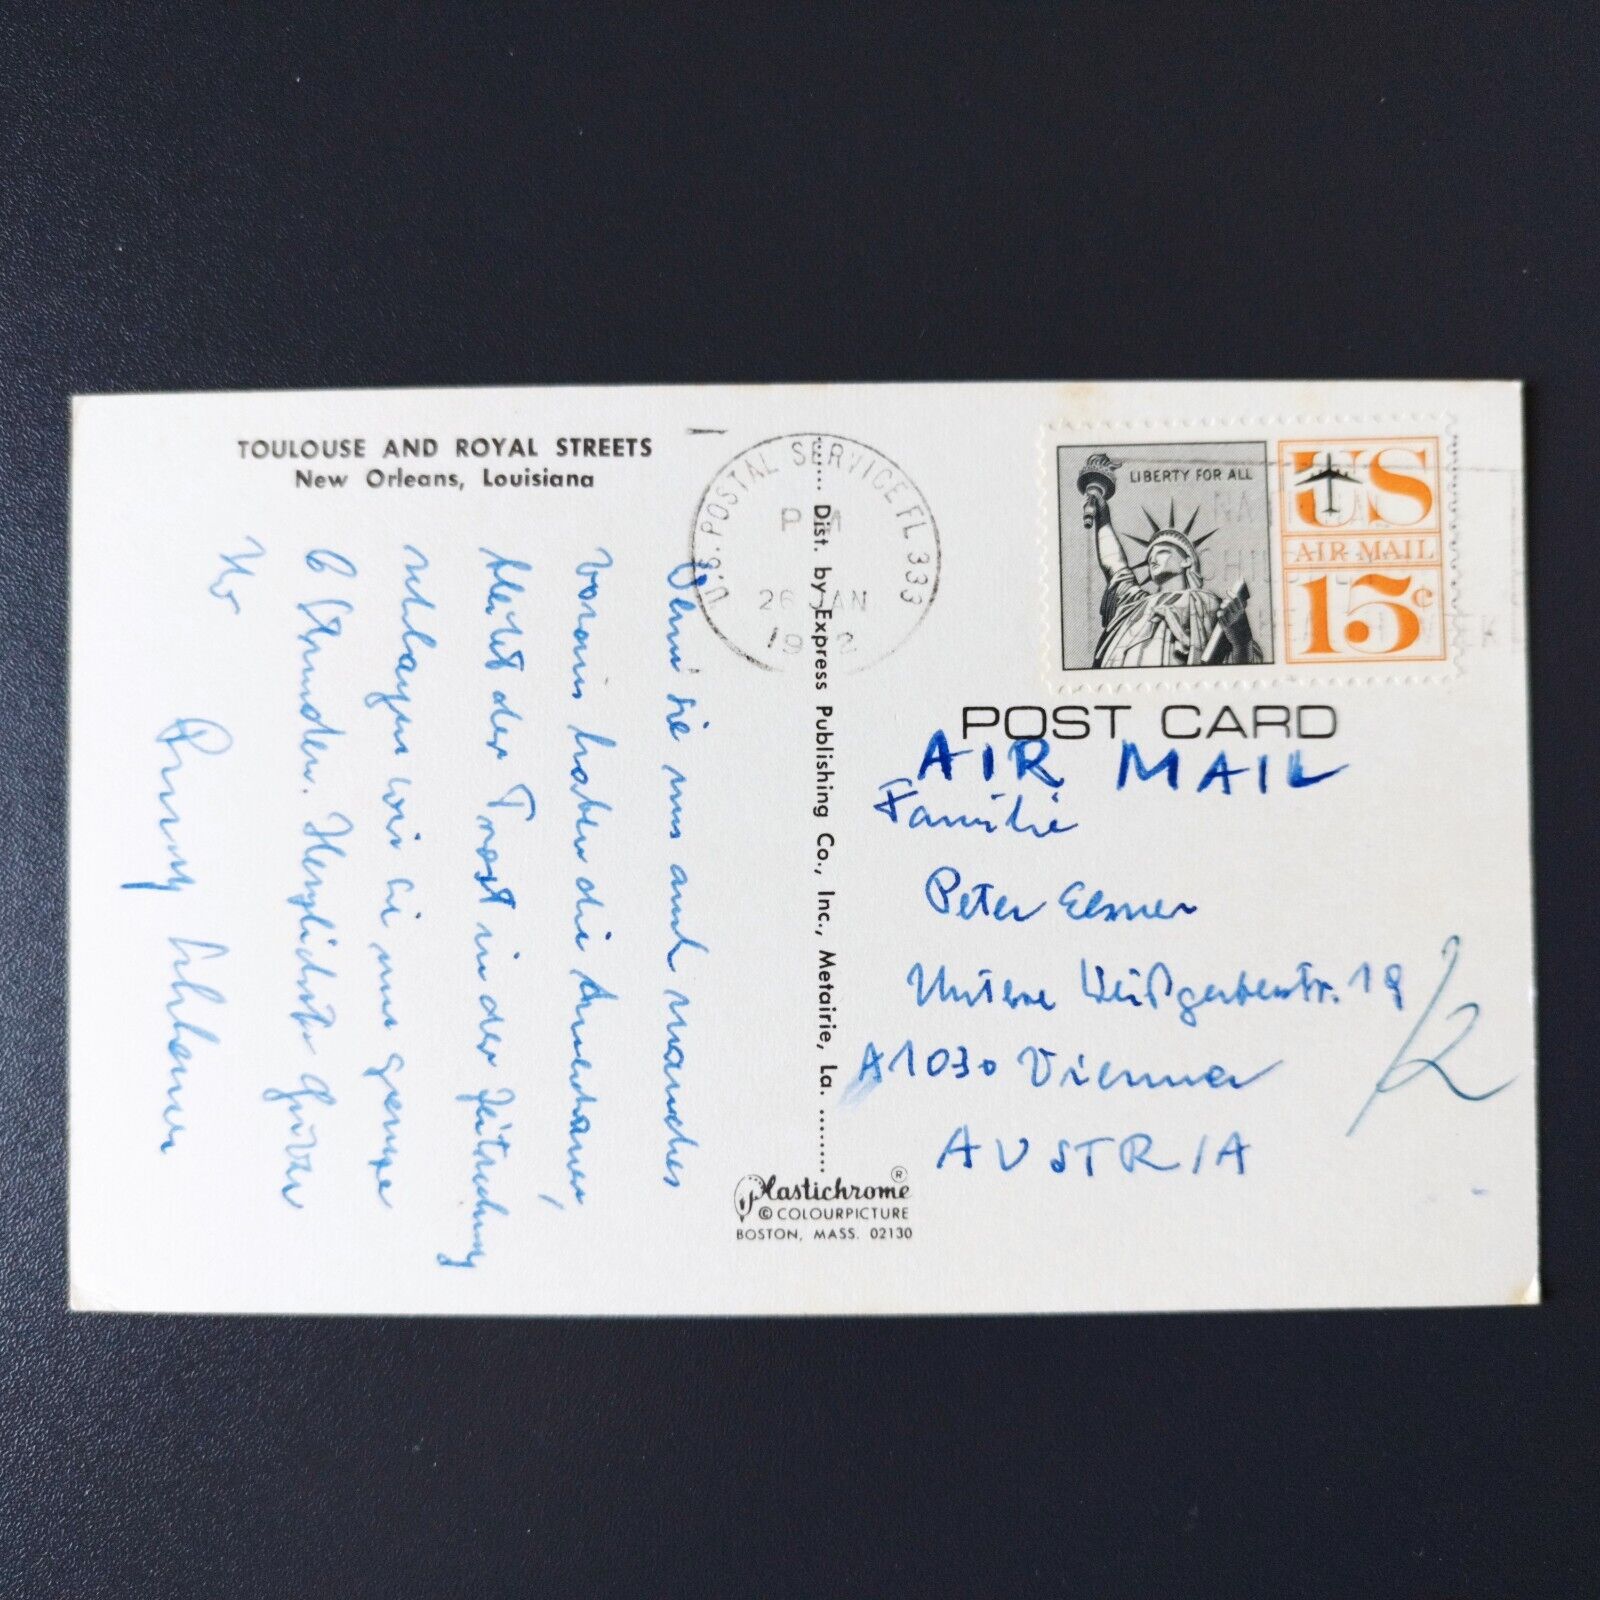 TOULOUSE AND ROYAL STREETS
New Orleans, Louisiana
Wenn sie uns auch manches
voraus haben die Amerikaner,
bleibt der Trost in der Zeitrechnung
schlagen wir sie um ganze
6 Stunden. Herzlichste Grüße
Ihr
Dist. by Express Publishing Co., Inc., Metairie, La.
Plastichrome ®
© COLOURPICTURE
BOSTON, MASS. 02130
U.S. POSTAL SERVICE, FL 333
PM
26 JAN
LIBERTY FOR ALL
US
AIR MAIL
15c
POST CARD
AIR MAIL
Familie
Peter Elsner
Untere Weißgerberstr. 19
A1030 Vienna
AUSTRIA